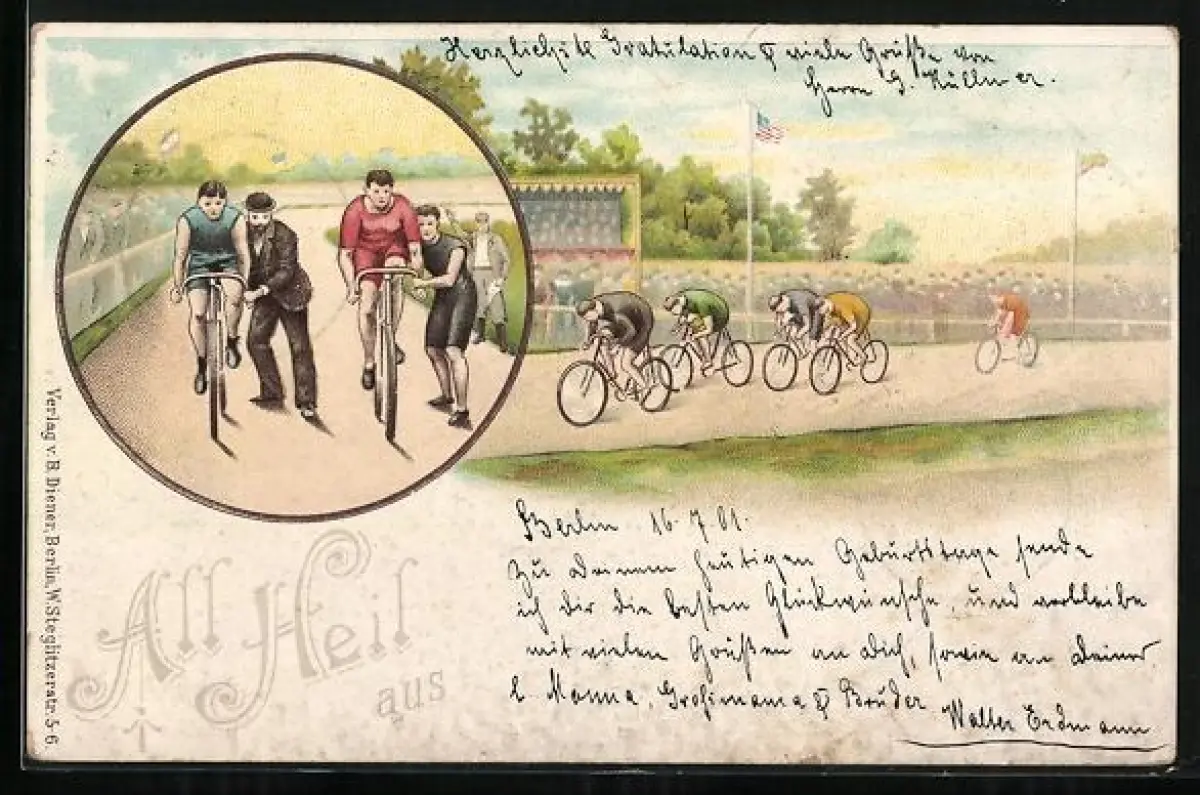 Herzlichste Gratulation & viele Grüße von
Herrn G. Küllmer.
Verlag v. B. Diener, Berlin, W. Steglitzerstr. 5-6.
All Heil
aus
Berlin 16.7.01.
Zu Deinem heutigen Geburtstage sende
ich dir die besten Glückwünsche, und verbleibe
mit vielen Grüßen an dich, sowie an Deine
l. Mama, Großmama & Bruder
Walter Erdmann